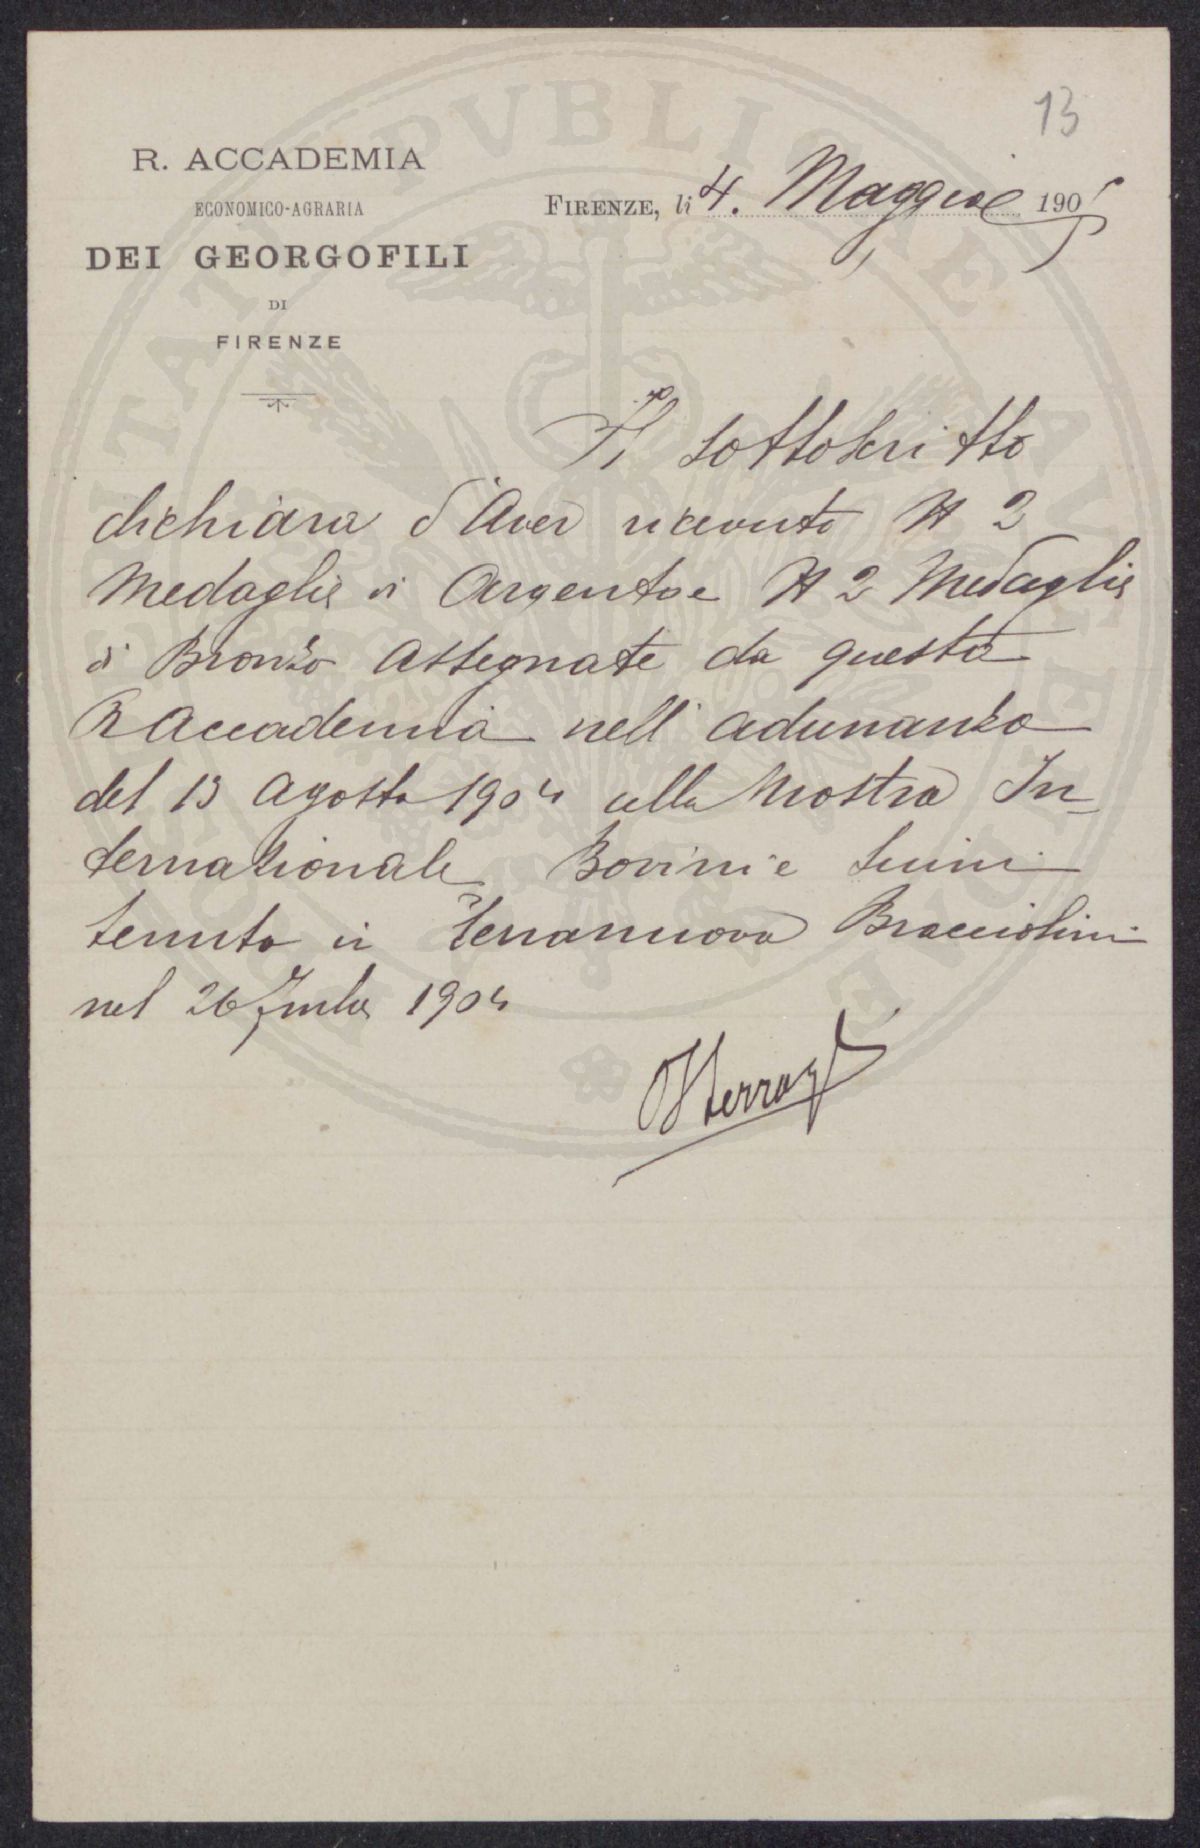 13
R. ACCADEMIA
ECONOMICO-AGRARIA
DEI GEORGOFILI
DI
FIRENZE
FIRENZE, li 4. Maggio 1905
Il sottoscritto
dichiara d'Aver ricevuto N 2
Medaglie di Argento e N 2 Medaglie
di Bronzo Assegnate da questa
R Accademia nell' adunanza
del 13 Agosto 1904 alla Mostra In=
ternazionale Bovini e Suini
tenuta in Terranuova Bracciolini
nel 26 1904
PROSPERITATI PUBLICAE AUGENDAE